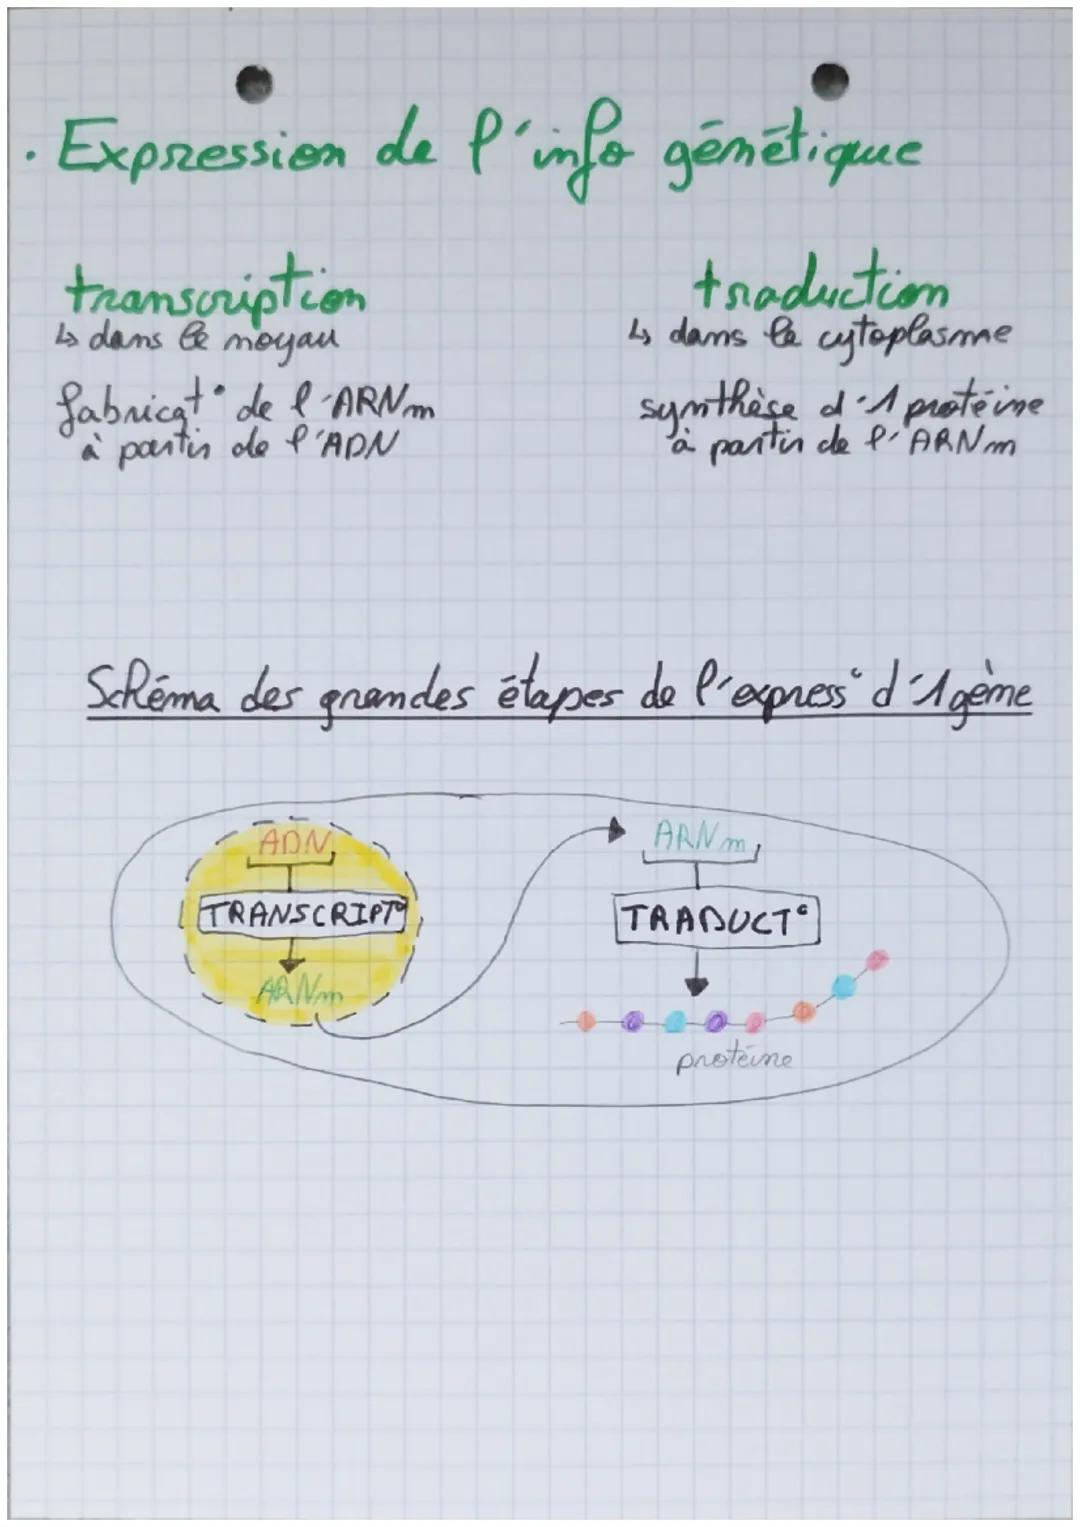 . Expression de l'info génétique
transcription
↳ dans le noyau
fabricat° de l'ARNm
à partir de l'ADN
traduction
↳ dans le cytoplasme
synthèse d'1 protéine
à partir de l'ARNm
Schéma des grandes étapes de l'express° d'1 gène
ADN
TRANSCRIPT°
ARNm
ARNm
TRADUCT°
protéine